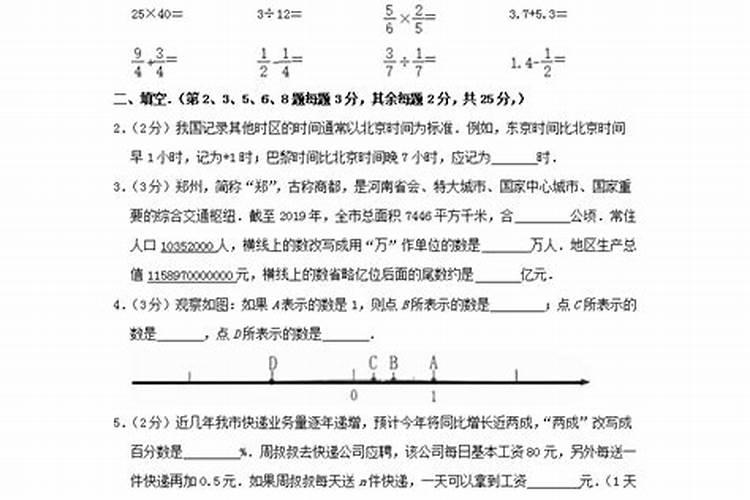 25×40=  3÷12=  5/6×2/5=  3.7+5.3=
9/4+3/4=  1/2-1/4=  3/7÷1/7=  1.4-1/2=
二、填空.（第2、3、5、6、8题每题3分，其余每题2分，共25分，）
2.（2分）我国记录其他时区的时间通常以北京时间为标准．例如，东京时间比北京时间
早1小时，记为+1时；巴黎时间比北京时间晚7小时，应记为______时．
3.（3分）郑州，简称“郑”，古称商都，是河南省会、特大城市、国家中心城市、国家重
要的综合交通枢纽．截至2019年，全市总面积7446平方千米，合______公顷．常住
人口10352000人，横线上的数改写成用“万”作单位的数是______万人．地区生产总
值1158970000000元，横线上的数省略亿位后面的尾数约是______亿元．
4.（3分）观察如图：如果A表示的数是1，则点B所表示的数是______；点C所表示的
数是______，点D所表示的数是______．
D C B A
0 1
5.（2分）近几年我市快递业务量逐年递增，预计今年将同比增长近两成，“两成”改写成
百分数是______%．周叔叔去快递公司应聘，该公司每日基本工资80元，另外每送一
件快递再加0.5元．如果周叔叔每天送n件快递，一天可以拿到工资______元．（1天